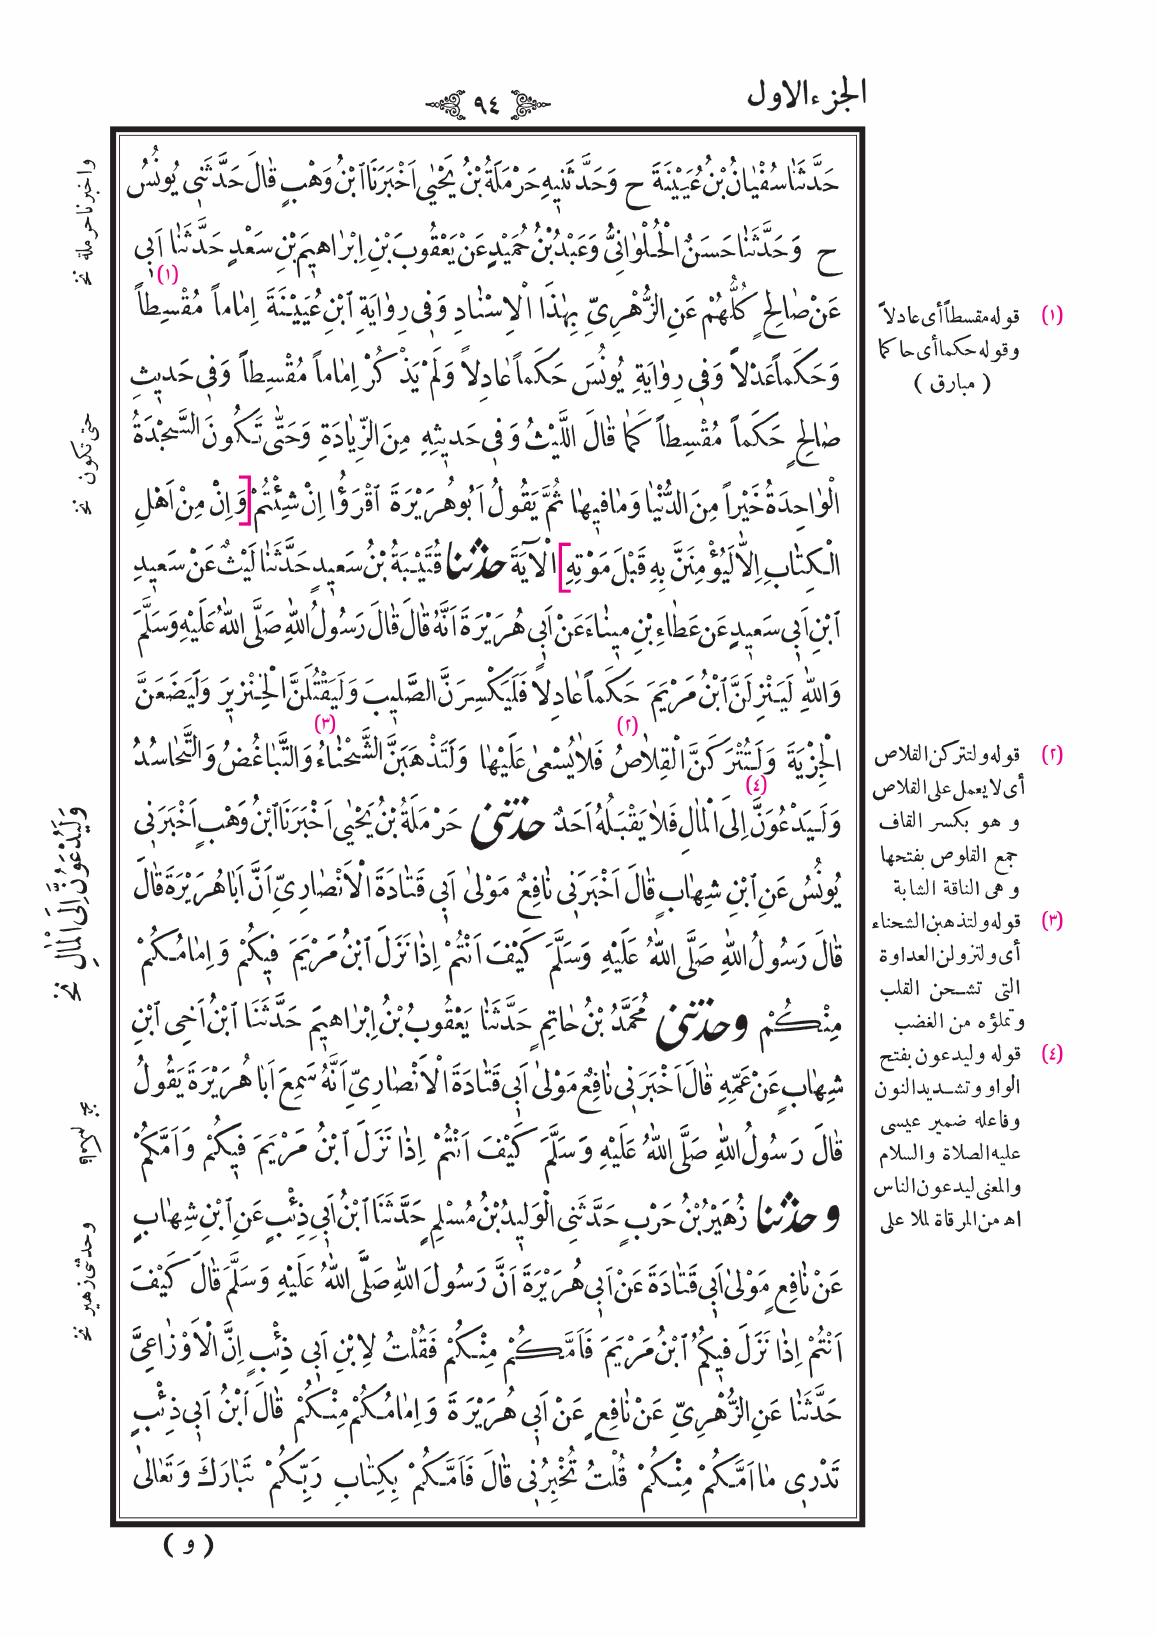 الجزء الاول
٩٤
حَدَّثَنَا سُفْيَانُ بْنُ عُيَيْنَةَ ح وَحَدَّثَنِيهِ حَرْمَلَةُ بْنُ يَحْيٰى اَخْبَرَنَا ابْنُ وَهْبٍ قَالَ حَدَّثَنِى يُونُسُ
ح وَحَدَّثَنَا حَسَنٌ الْحُلْوَانِىُّ وَعَبْدُ بْنُ حُمَيْدٍ عَنْ يَعْقُوبَ بْنِ اِبْرَاهِيمَ بْنِ سَعْدٍ حَدَّثَنَا اَبِى
عَنْ صَالِحٍ كُلُّهُمْ عَنِ الزُّهْرِىِّ بِهٰذَا الْاِسْنَادِ وَفِى رِوَايَةِ ابْنِ عُيَيْنَةَ اِمَاماً مُقْسِطاً (١)
وَحَكَماً عَدْلاً وَفِى رِوَايَةِ يُونُسَ حَكَماً عَادِلاً وَلَمْ يَذْكُرْ اِمَاماً مُقْسِطاً وَفِى حَدِيثِ
صَالِحٍ حَكَماً مُقْسِطاً كَمَا قَالَ اللَّيْثُ وَفِى حَدِيثِهِ مِنَ الزِّيَادَةِ وَحَتّٰى تَكُونَ السَّجْدَةُ
الْوَاحِدَةُ خَيْراً مِنَ الدُّنْيَا وَمَا فِيهَا ثُمَّ يَقُولُ اَبُو هُرَيْرَةَ اقْرَؤُا اِنْ شِئْتُمْ [وَاِنْ مِنْ اَهْلِ
الْكِتَابِ اِلَّا لَيُؤْمِنَنَّ بِهِ قَبْلَ مَوْتِهِ] الْآيَةَ حَدَّثَنَا قُتَيْبَةُ بْنُ سَعِيدٍ حَدَّثَنَا لَيْثٌ عَنْ سَعِيدِ
ابْنِ اَبِى سَعِيدٍ عَنْ عَطَاءِ بْنِ مِينَاءَ عَنْ اَبِى هُرَيْرَةَ اَنَّهُ قَالَ قَالَ رَسُولُ اللّٰهِ صَلَّى اللّٰهُ عَلَيْهِ وَسَلَّمَ
وَاللّٰهِ لَيَنْزِلَنَّ ابْنُ مَرْيَمَ حَكَماً عَادِلاً فَلَيَكْسِرَنَّ الصَّلِيبَ وَلَيَقْتُلَنَّ الْخِنْزِيرَ وَلَيَضَعَنَّ
الْجِزْيَةَ وَلَتُتْرَكَنَّ الْقِلَاصُ (٢) فَلَا يُسْعٰى عَلَيْهَا وَلَتَذْهَبَنَّ الشَّحْنَاءُ (٣) وَالتَّبَاغُضُ وَالتَّحَاسُدُ
وَلَيَدْعُوَنَّ (٤) اِلَى الْمَالِ فَلَا يَقْبَلُهُ اَحَدٌ حَدَّثَنِى حَرْمَلَةُ بْنُ يَحْيٰى اَخْبَرَنَا ابْنُ وَهْبٍ اَخْبَرَنِى
يُونُسُ عَنِ ابْنِ شِهَابٍ قَالَ اَخْبَرَنِى نَافِعٌ مَوْلٰى اَبِى قَتَادَةَ الْاَنْصَارِىِّ اَنَّ اَبَا هُرَيْرَةَ قَالَ
قَالَ رَسُولُ اللّٰهِ صَلَّى اللّٰهُ عَلَيْهِ وَسَلَّمَ كَيْفَ اَنْتُمْ اِذَا نَزَلَ ابْنُ مَرْيَمَ فِيكُمْ وَاِمَامُكُمْ
مِنْكُمْ وَحَدَّثَنِى مُحَمَّدُ بْنُ حَاتِمٍ حَدَّثَنَا يَعْقُوبُ بْنُ اِبْرَاهِيمَ حَدَّثَنَا ابْنُ اَخِى ابْنِ
شِهَابٍ عَنْ عَمِّهِ قَالَ اَخْبَرَنِى نَافِعٌ مَوْلٰى اَبِى قَتَادَةَ الْاَنْصَارِىِّ اَنَّهُ سَمِعَ اَبَا هُرَيْرَةَ يَقُولُ
قَالَ رَسُولُ اللّٰهِ صَلَّى اللّٰهُ عَلَيْهِ وَسَلَّمَ كَيْفَ اَنْتُمْ اِذَا نَزَلَ ابْنُ مَرْيَمَ فِيكُمْ وَاَمَّكُمْ
وحَدَّثَنَا زُهَيْرُ بْنُ حَرْبٍ حَدَّثَنِى الْوَلِيدُ بْنُ مُسْلِمٍ حَدَّثَنَا ابْنُ اَبِى ذِئْبٍ عَنِ ابْنِ شِهَابٍ
عَنْ نَافِعٍ مَوْلٰى اَبِى قَتَادَةَ عَنْ اَبِى هُرَيْرَةَ اَنَّ رَسُولَ اللّٰهِ صَلَّى اللّٰهُ عَلَيْهِ وَسَلَّمَ قَالَ كَيْفَ
اَنْتُمْ اِذَا نَزَلَ فِيكُمُ ابْنُ مَرْيَمَ فَاَمَّكُمْ مِنْكُمْ فَقُلْتُ لِابْنِ اَبِى ذِئْبٍ اِنَّ الْاَوْزَاعِىَّ
حَدَّثَنَا عَنِ الزُّهْرِىِّ عَنْ نَافِعٍ عَنْ اَبِى هُرَيْرَةَ وَاِمَامُكُمْ مِنْكُمْ قَالَ ابْنُ اَبِى ذِئْبٍ
تَدْرِى مَا اَمَّكُمْ مِنْكُمْ قُلْتُ تُخْبِرُنِى قَالَ فَاَمَّكُمْ بِكِتَابِ رَبِّكُمْ تَبَارَكَ وَتَعَالٰى
( و )
(١) قوله مقسطاً أى عادلاً
وقوله حكما أى حاكما
( مبارق )
(٢) قوله ولتتركن القلاص
أى لا يعمل على القلاص
و هو بكسر القاف
جمع القلوص بفتحها
وهى الناقة الشابة
(٣) قوله ولتذهبن الشحناء
أى ولتزولن العداوة
التى تشحن القلب
وتملؤه من الغضب
(٤) قوله وليدعون بفتح
الواو وتشديد النون
وفاعله ضمير عيسى
عليه الصلاة والسلام
والمعنى ليدعون الناس
اه من المرقاة لملا على
واخبرنا حرملة نخ
حتى تكون نخ
وَلَيُدْعَوُنَّ اِلَى الْمَالِ نخ
وحدثنى زهير نخ